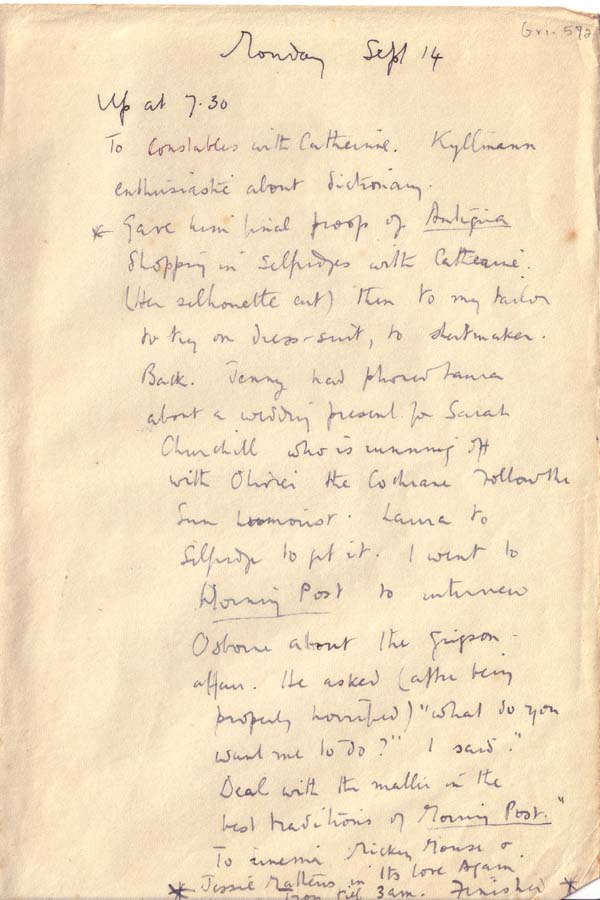 Monday Sept 14
Up at 7.30
To Constables with Catherine. Kyllmann
enthusiastic about dictionary.
* Gave him final proof of Antigua
Shopping in Selfridges with Catherine.
(Her silhouette cut) then to my tailor
to try on dress-suit, to shirtmaker.
Back. Jenny had phoned Laura
about a wedding present for Sarah
Churchill who is running off
with the Cochrane Follow the
Sun humorist. Laura to
Selfridge to get it. I went to
Morning Post to interview
Osborne about the Grigson-
affair. He asked (after being
properly horrified) "what do you
want me to do?" I said "
Deal with the matter in the
best traditions of Morning Post."
To cinema Mickey Mouse &
* Jessie Mathews in Its Love Again.
till 3am. Finished *